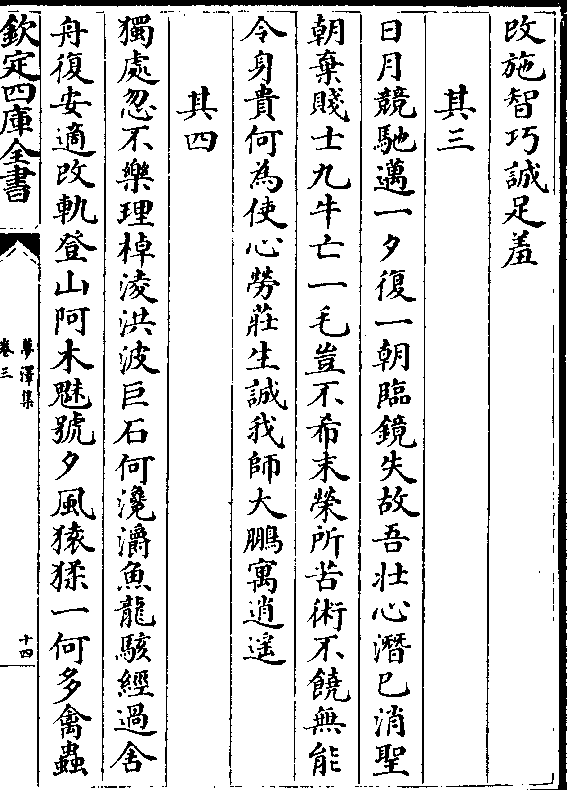 改施智巧誠足羞
其三
日月競馳邁一夕復一朝臨鏡失故吾壯心潛已消聖
朝棄賤士九牛亡一毛豈不希末榮所苦術不饒無能
令身貴何為使心勞莊生誠我師大鵬寓逍遥
其四
獨處忽不樂理棹淩洪波巨石何瀺灂魚龍駭經過舍
舟復安適改軌登山阿木魅號夕風猿猱一何多禽蟲
欽定四庫全書
夢澤集
卷三
十四